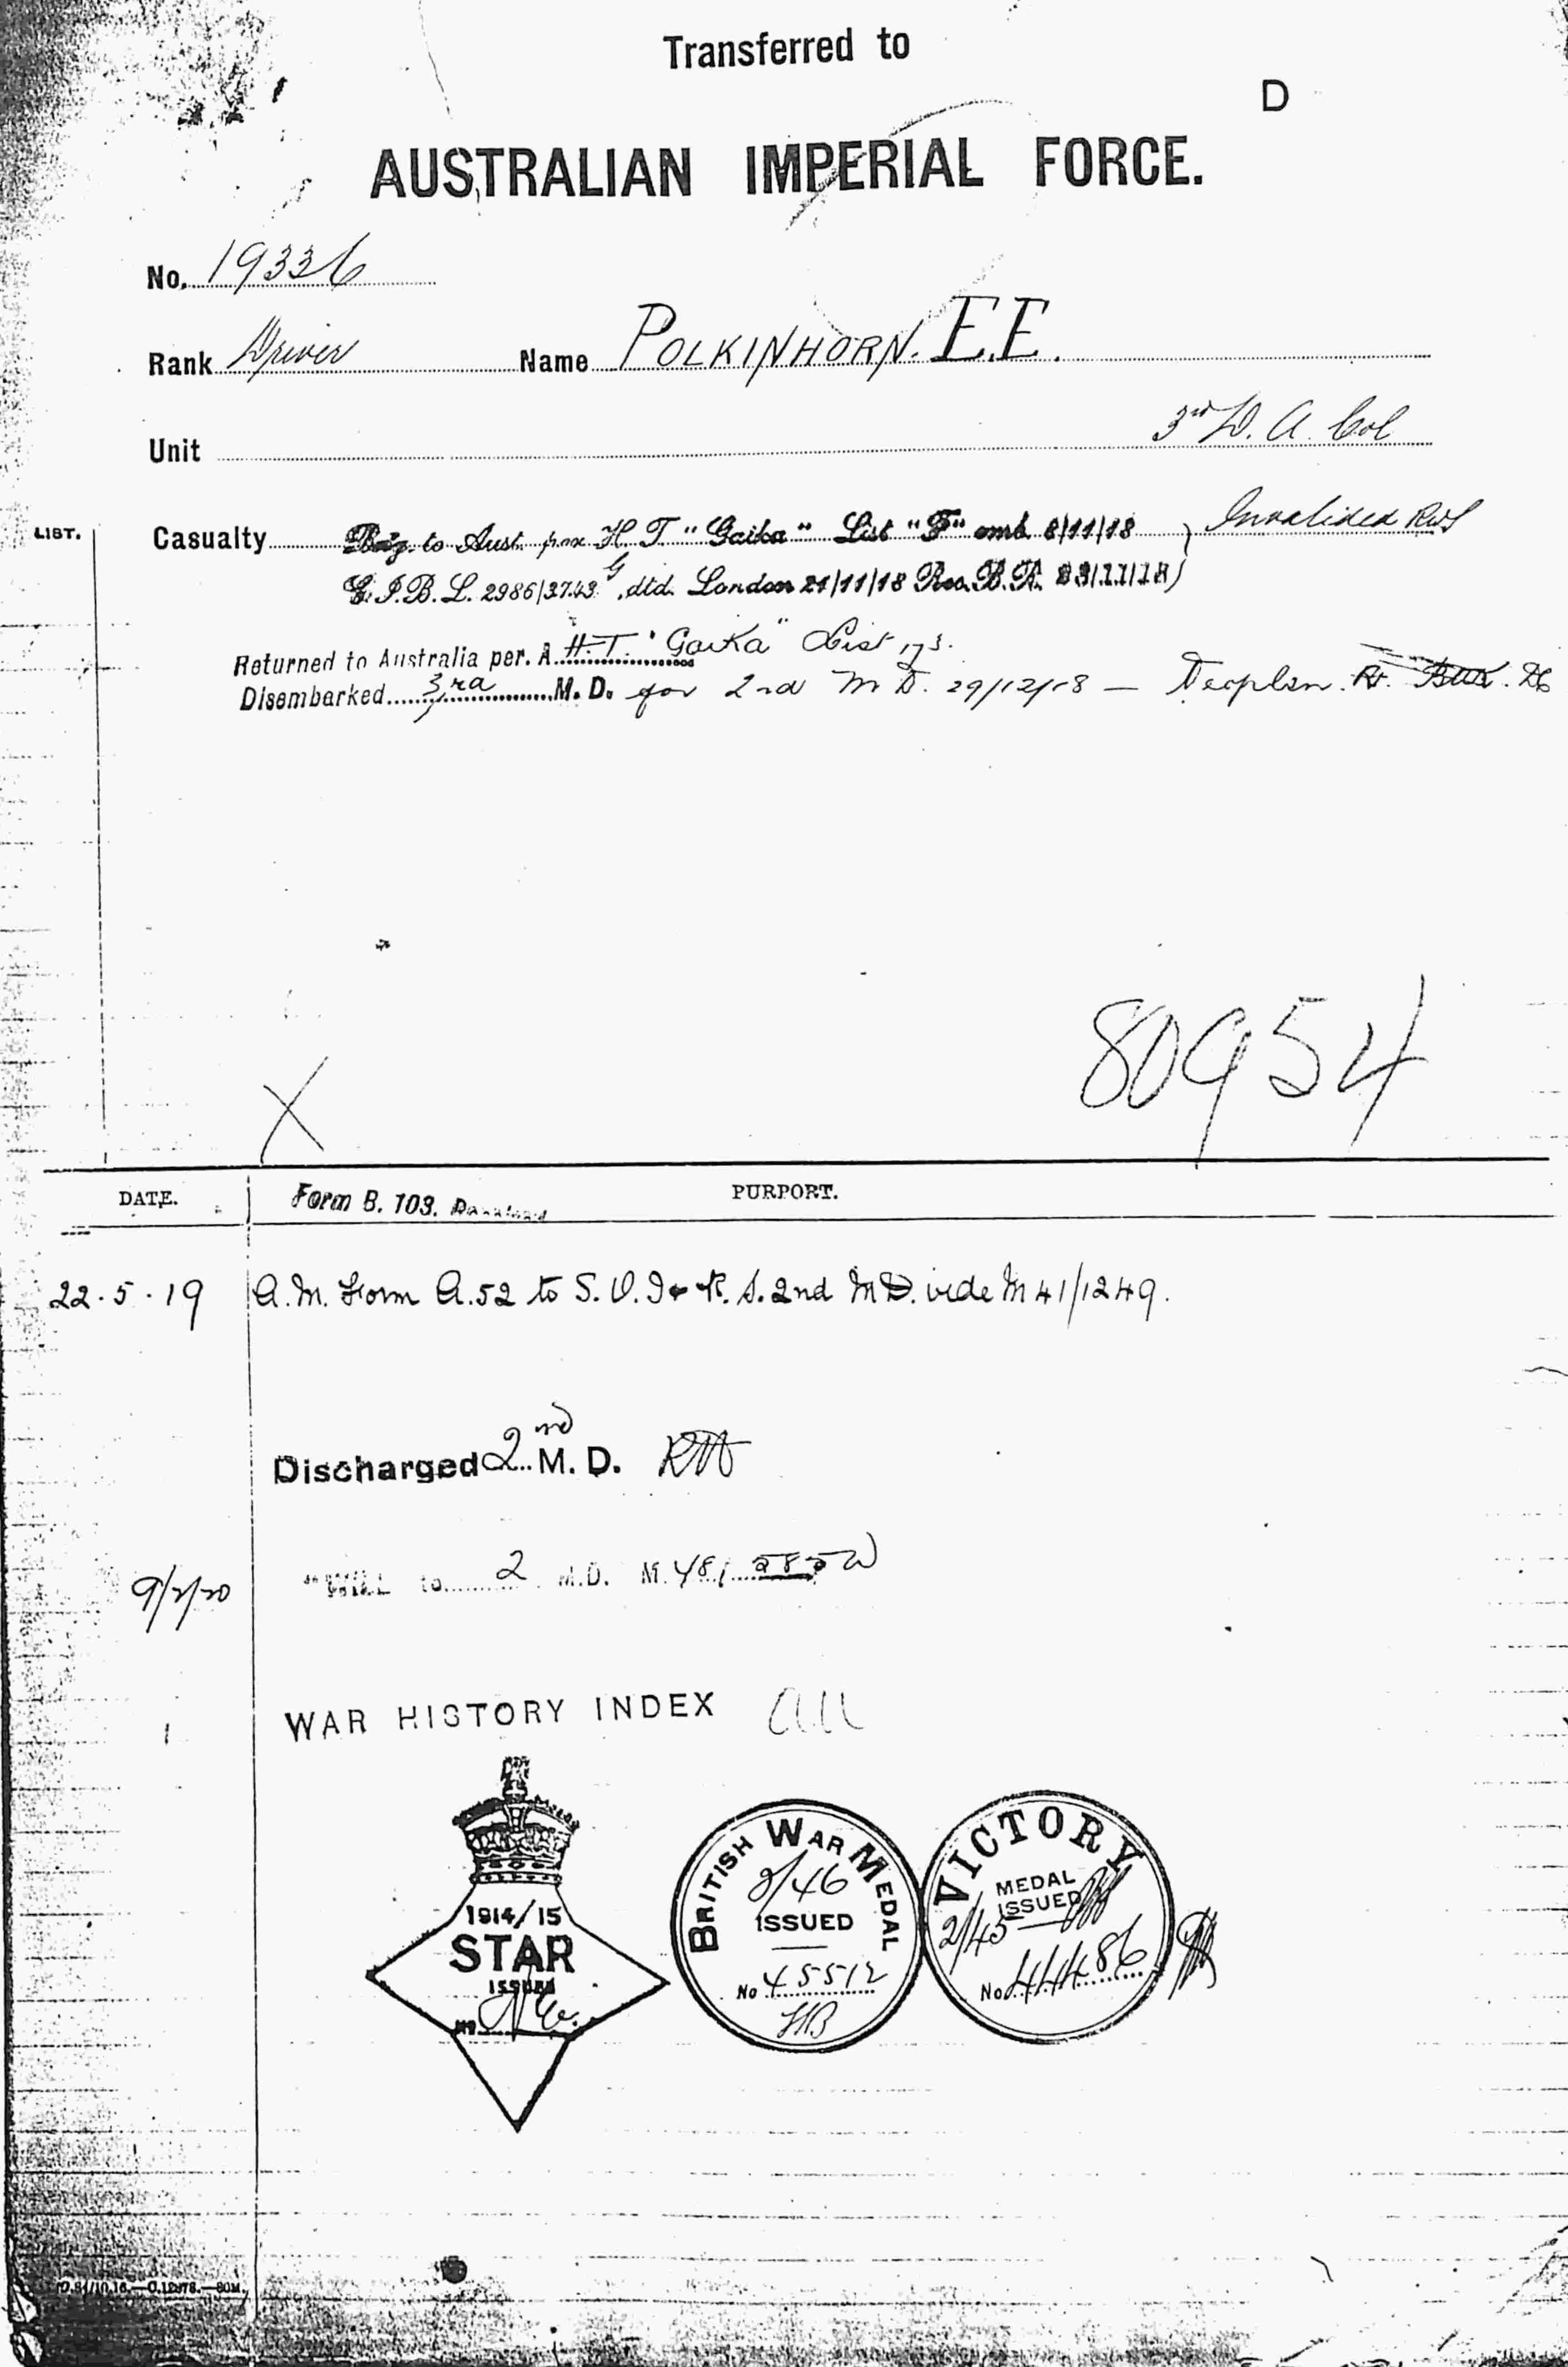 Transferred to
D
AUSTRALIAN IMPERIAL FORCE.
No. 19336
Rank Driver Name POLKINHORN. E.E.
Unit 3rd D. A. Col
LIST.
Casualty to Aust. per H.T "Gaika" List "F" emb. 8/11/18 Invalided
B.L. 2986/3743 dtd. London 21/11/18
Returned to Australia per. A H.T. "Gaika" List
Disembarked 3rd M. D. for 2nd M D. 29/12/18 —
80954
X
DATE. Form B. 103. PURPORT.
22.5.19 A.M. Form A.52 to S.O.I & R.S. 2nd M.D. vide M 41/1249.
Discharged 2nd M. D.
9/2/20 WILL to 2 M.D. M.481
WAR HISTORY INDEX
1914/15
STAR
ISSUED
No
BRITISH WAR MEDAL
2/46
ISSUED
No 45512
HB
VICTORY
MEDAL
ISSUED
2/45
No 44486